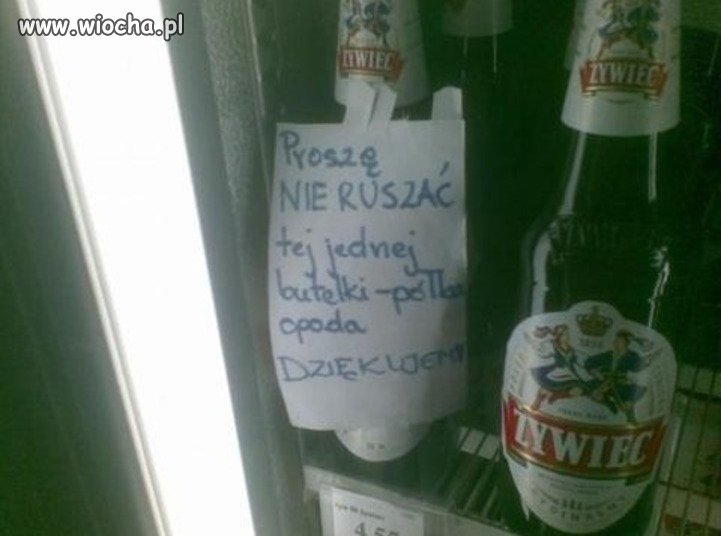 www.wiocha.pl
ŻYWIEC
ŻYWIEC
Proszę
NIE RUSZAĆ
tej jednej
butelki - półka
opada
DZIĘKUJEMY
ŻYWIEC
4,55